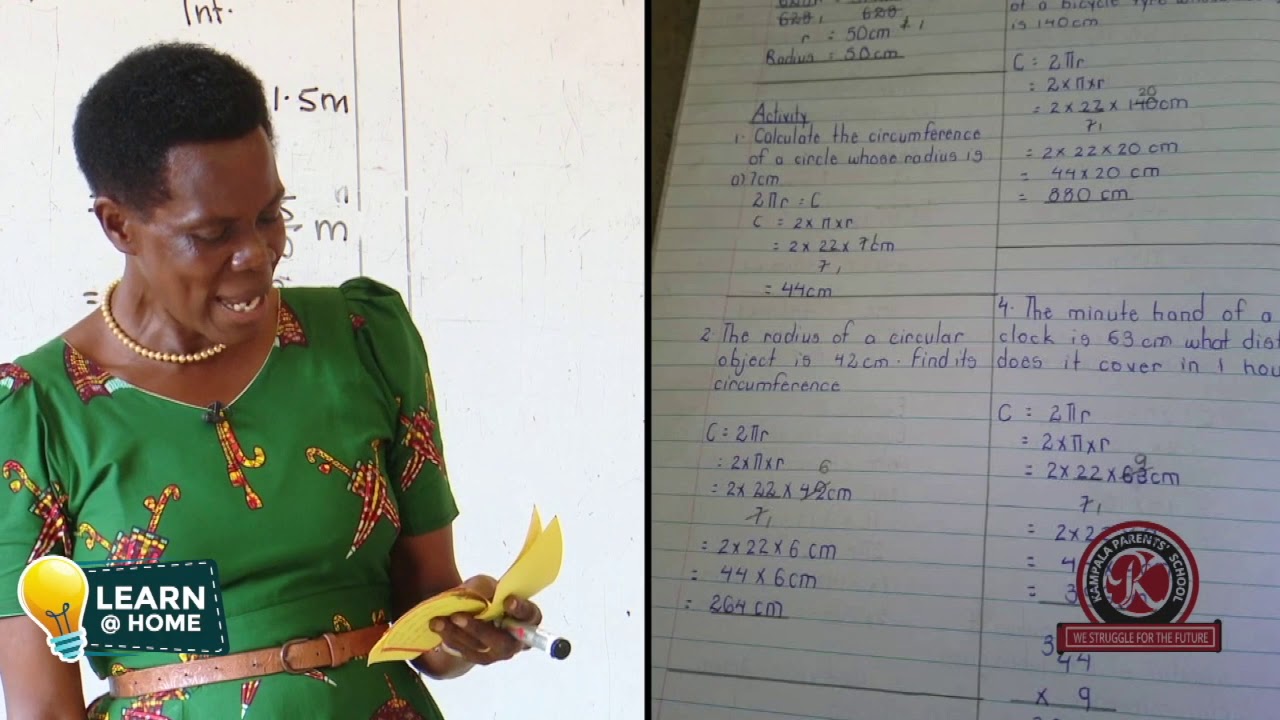 Int.
1.5m
m
=
LEARN
@ HOME
628, 628
r = 50cm
Radius = 50cm
Activity
1. Calculate the circumference
of a circle whose radius is
a) 7cm
2πr = C
C = 2×π×r
= 2×22×7cm
7 1
= 44cm
2. The radius of a circular
object is 42cm. Find its
circumference
C = 2πr
= 2×π×r 6
= 2×22×42cm
7 1
= 2×22×6 cm
= 44×6cm
= 264 cm
of a bicycle tyre
is 140cm
C = 2πr
= 2×π×r 20
= 2×22×140cm
7 1
= 2×22×20 cm
= 44×20 cm
= 880 cm
4. The minute hand of a
clock is 63cm what
does it cover in 1
C = 2πr
= 2×π×r 9
= 2×22×63cm
7 1
= 2×2
= 4
= 3
3
44
× 9
KAMPALA PARENTS' SCHOOL
K
WE STRUGGLE FOR THE FUTURE